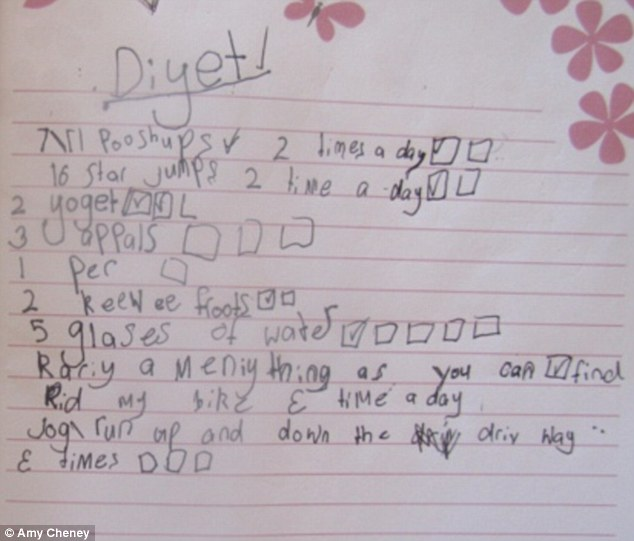 Diyet!
Pooshups 2 times a day
16 star jumps 2 time a day
2 yoget
3 appals
1 per
2 keewee froots
5 glases of water
Rariy a meniything as you can find
Rid my bike 3 time a day
Jog/run up and down the driv way
3 times
© Amy Cheney